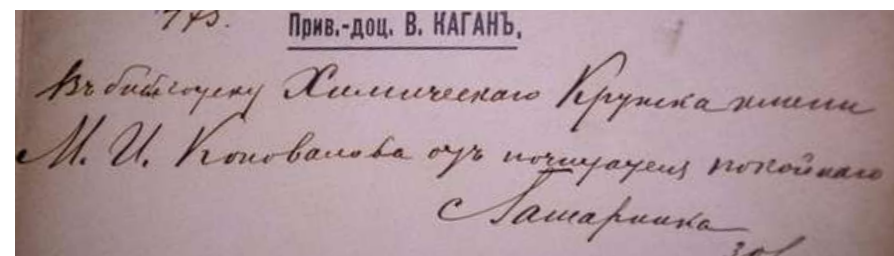 173.
Прив.-доц. В. КАГАНЪ.
Въ библіотеку Химическаго Кружка имени
М. И. Коновалова отъ почитателя покойнаго